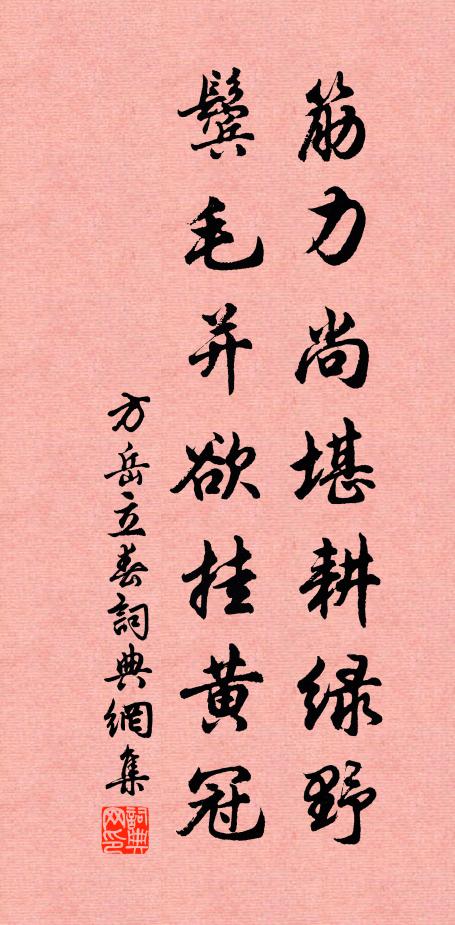 筋力尚堪耕绿野
鬓毛并欲挂黄冠
方岳立春詞典網集
詞典
网印